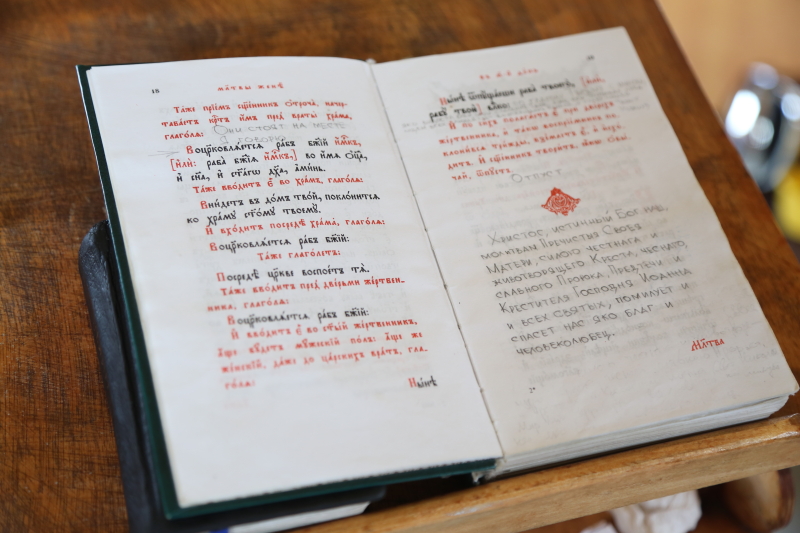 18
мл҃твы женѣ̀
Та́же прїи́мъ сщ҃е́нникъ ѻ҆троча̀, начер-
тава́етъ крⷭ҇тъ и҆́мъ пред̾ враты̀ хра́ма,
глаго́лѧ: Они стоят на месте
я говорю
Воцр҃ко́влѧетсѧ ра́бъ бж҃їй и҆́м҃къ,
[и҆лѝ: раба̀ бж҃їѧ и҆́м҃къ,] во и҆́мѧ ѻ҆ц҃а̀,
и҆ сн҃а, и҆ ст҃а́гѡ дх҃а, а҆ми́нь.
Та́же вво́дитъ є҆̀ во хра́мъ, глаго́лѧ:
Вни́детъ въ до́мъ тво́й, поклони́тсѧ
ко хра́мꙋ ст҃о́мꙋ твоемꙋ̀.
И҆ вхо́дитъ посредѣ̀ хра́ма, глаго́лѧ:
Воцр҃ко́влѧетсѧ ра́бъ бж҃їй:
Та́же глаго́летъ:
Посредѣ̀ цр҃кве воспое́тъ тѧ̀.
Та́же вво́дитъ пред̾ две́рьми же́ртвен-
ника, глаго́лѧ:
Воцр҃ко́влѧетсѧ ра́бъ бж҃їй:
И҆ вво́дитъ є҆̀ во ст҃ы́й же́ртвенникъ,
а҆́ще бꙋ́детъ мꙋ́жескїй по́лъ: а҆́ще же
же́нскїй, да́же до ца́рскихъ вра́тъ, гла-
го́лѧ:
Ны́нѣ
въ м҃ де́нь
Ны́нѣ ѿпꙋща́еши раба̀ твоего̀, [и҆лѝ,
рабꙋ̀ твою̀] влⷣко:
И҆ по си́хъ полага́етъ є҆̀ пред̾ две́рьми
же́ртвенника, и҆ та́кѡ воспрїе́мникъ по-
клони́всѧ три́жды, взе́млетъ є҆̀, и҆ и҆схо́-
дитъ. И҆ сщ҃е́нникъ твори́тъ, ꙗ҆́кѡ ѻ҆бы́-
чай, ѿпꙋ́стъ.
Отпуст
Христос, истинный Бог наш,
молитвам Пречистыя Своея
Матери, силою честнаго и
животворящего Креста, честнаго,
славнаго Пророка Предтечи и
Крестителя Господня Иоанна
и всех святых, помилует и
спасет нас яко благ и
человеколюбец.
Мл҃тва